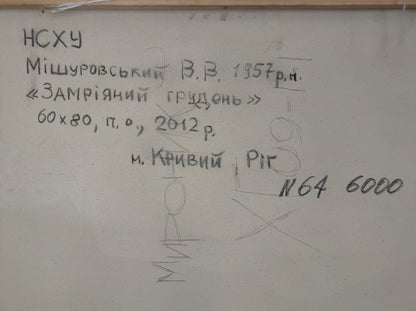 НСХУ
Мішуровський В.В. 1957 р.н.
«Замріяний грудень»
60х80, п.о., 2012 р.
м. Кривий Ріг
N64 6000